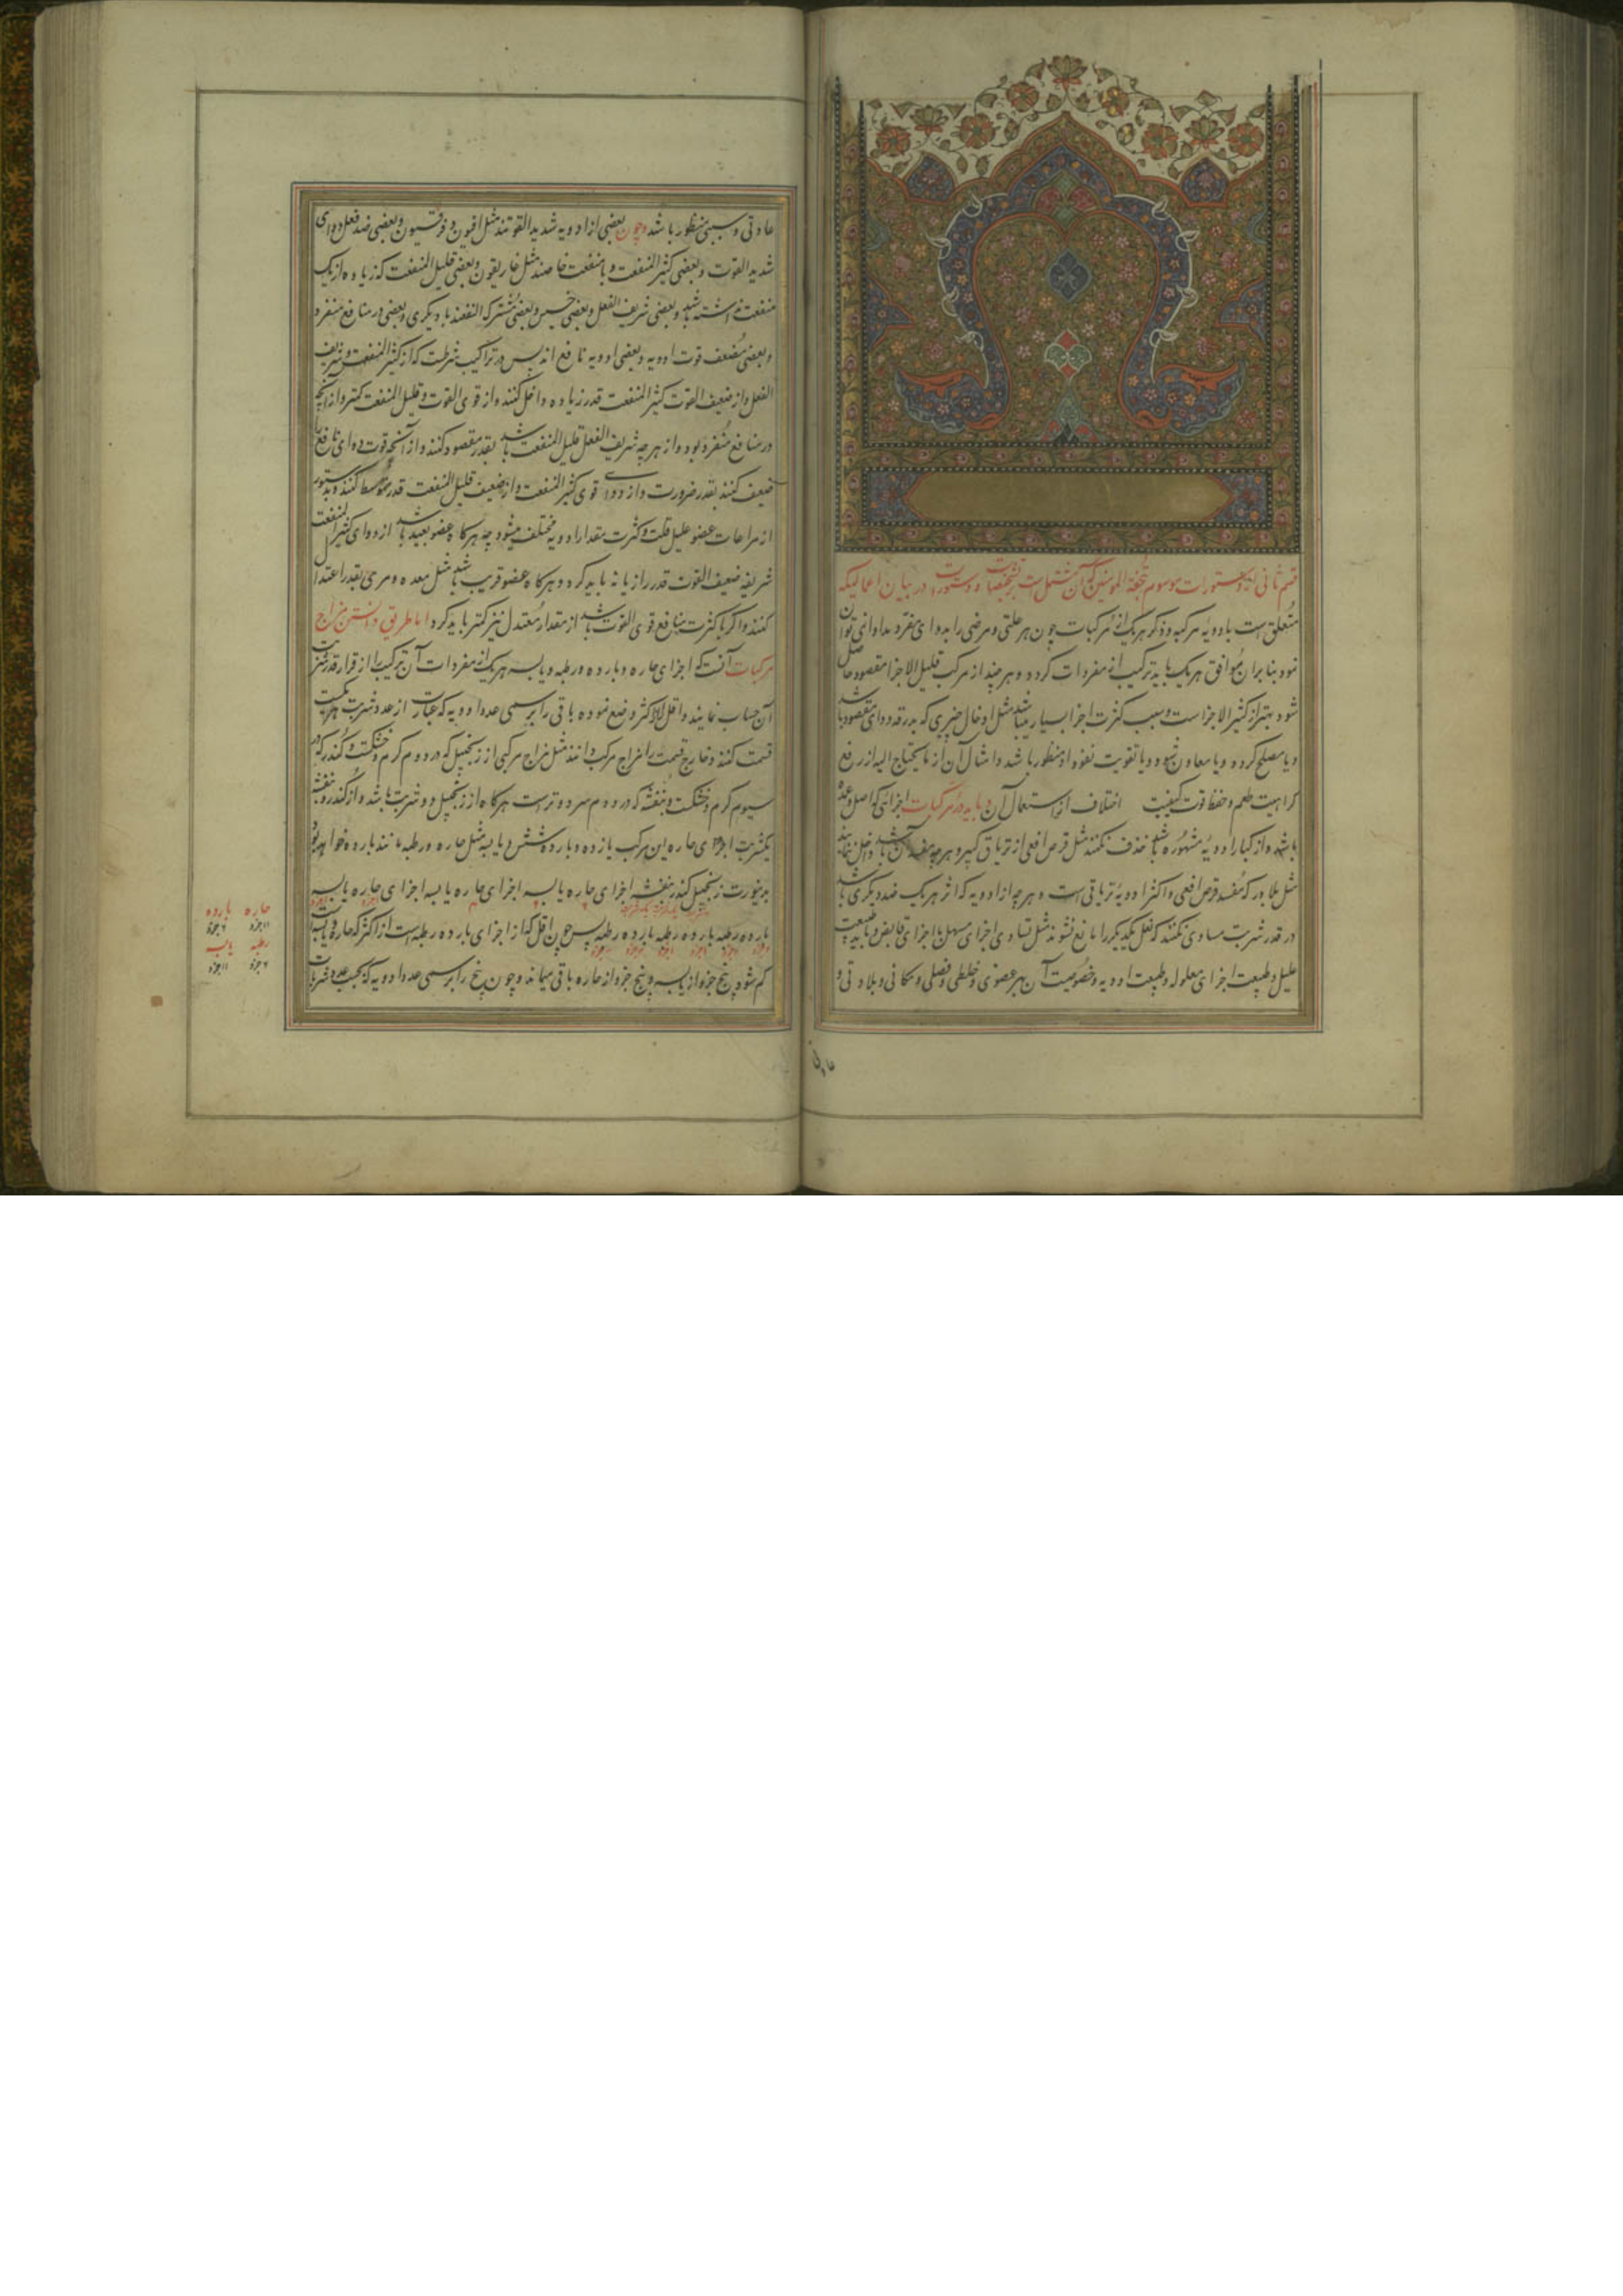 قسم ثانی از دستورات موسوم بتحفة المومنین که آن مشتمل است بتشخیصات و دستورات در بیان اعمالیکه
متعلق است بادویه مرکبه و ذکر هر یک از مرکبات چون هر علتی و مرضی را بدوای مفرد مداوا نمی توان
نمود بنا بران موافق هر یک باید ترکیب از مفردات کرد و هر چند از مرکب قلیل الاجزا مقصود حاصل
شود بهتر از کثیر الاجزا است و سبب کثرت اجزا بسیار میباشد مثل ادخال چیزی که بدرقه دوای مقصود باشد
و یا مصلح کرده و یا معاون نبود و یا تقویت نفوذ او منظور باشد و امثال آن از ما یحتاج الیه از رفع
کراهیت طعم و حفظ قوت کیفیت اختلاف از استعمال آن و باید در مرکبات اجزائی که اصل و عمده
باشد و از کبار ادویه مشهوره باشد حذف نکنند مثل قرص افعی از تریاق کبیر و هرچه مفسد آن باشد داخل ننمایند
مثل بلادر که مفسد قرص افعی و اکثر ادویه تریاقی است و هرچه از ادویه که اثر هر یک ضد دیگری باشد
در قدر شربت مساوی نکنند که فعل یکدیگر را مانع نشوند مثل تساوی اجزای مسهل با اجزای قابض و باید طبیعت
علیل و طبیعت اجزای معلول و طبیعت ادویه و خصوصیت آن بهر عضوی و خلطی و فصلی و مکانی و بلادتی و
عادتی
عادتی و سببی منظور باشد و چون بعضی از ادویه شدید القوتند مثل افیون و فرفیون و بعضی ضد فعل دوای
شدید القوت و بعضی کثیر المنفعت و با منفعت خاصند مثل غاریقون و بعضی قلیل المنفعت که زیاده از یک
منفعت نداشته باشد و بعضی شریف الفعل و بعضی خسیس و بعضی مشترک النفعند با دیگری و بعضی در منافع منفرد
و بعضی مضعف قوت ادویه و بعضی ادویه نافع اند پس در تراکیب شرطست که از کثیر المنفعت و شریف
الفعل و از ضعیف القوت کثیر المنفعت قدر زیاده داخل کنند و از قوی القوت و قلیل المنفعت کمتر و از آنچه
در منافع منفرد بود و از هر چه شریف الفعل قلیل المنفعت باشد بقدر مقصود کنند و از آنچه قوت دوای نافع را
ضعیف کنند بقدر ضرورت و از دوای قوی کثیر المنفعت و از ضعیف قلیل المنفعت قدر متوسط کنند و بدستور
از مراعات عضو علیل قلت و کثرت مقدار ادویه مختلف میشود چه هرگاه عضو بعید باشد از دوای کثیر المنفعت
شریفه ضعیف القوت قدر را زیاده باید کرد و هرگاه عضو قریب باشد مثل معده و مری بقدر اعتدال
کنند و اگر با کثرت منافع قوی القوت باشد از مقدار معتدل نیز کمتر باید کرد اما طریق دانستن مزاج
مرکبات آنست که اجزای حاره و بارده و رطبه و یابسه هر یک از مفردات آن ترکیب را از قرار قدر شربت
آن حساب نمایند و اقل را از اکثر وضع نموده باقی را بر سمی عدد ادویه که عبارت از عدد شربت هر یکست
قسمت کنند و خارج قسمت را مزاج مرکب دانند مثل مزاج مرکبی از زنجبیل که در دوم گرم و خشکست و کندر که در
سیوم گرم و خشکست و بنفشه که در دوم سرد و تر است هرگاه از زنجبیل دو شربت باشد و از کندر و بنفشه
یکشربت اجزای حاره این مرکب یازده و بارده شش و یابسه مثل حاره و رطبه مانند بارده خواهد بود
بدینصورت زنجبیل کندر بنفشه اجزای حاره یابسه اجزای حاره یابسه اجزای حاره یابسه
بارده رطبه بارده رطبه بارده رطبه پس چون اقل که از اجزای بارده رطبه است از اکثر که حاره یابسه است
کم شود پنج جزو از یابسه و پنج جزو از حاره باقی میماند و چون پنج را بر سمی عدد ادویه که بحسب عدد شربات
حاره بارده
۱۱جزو ۶جزو
رطبه یابسه
۶جزو ۱۱جزو